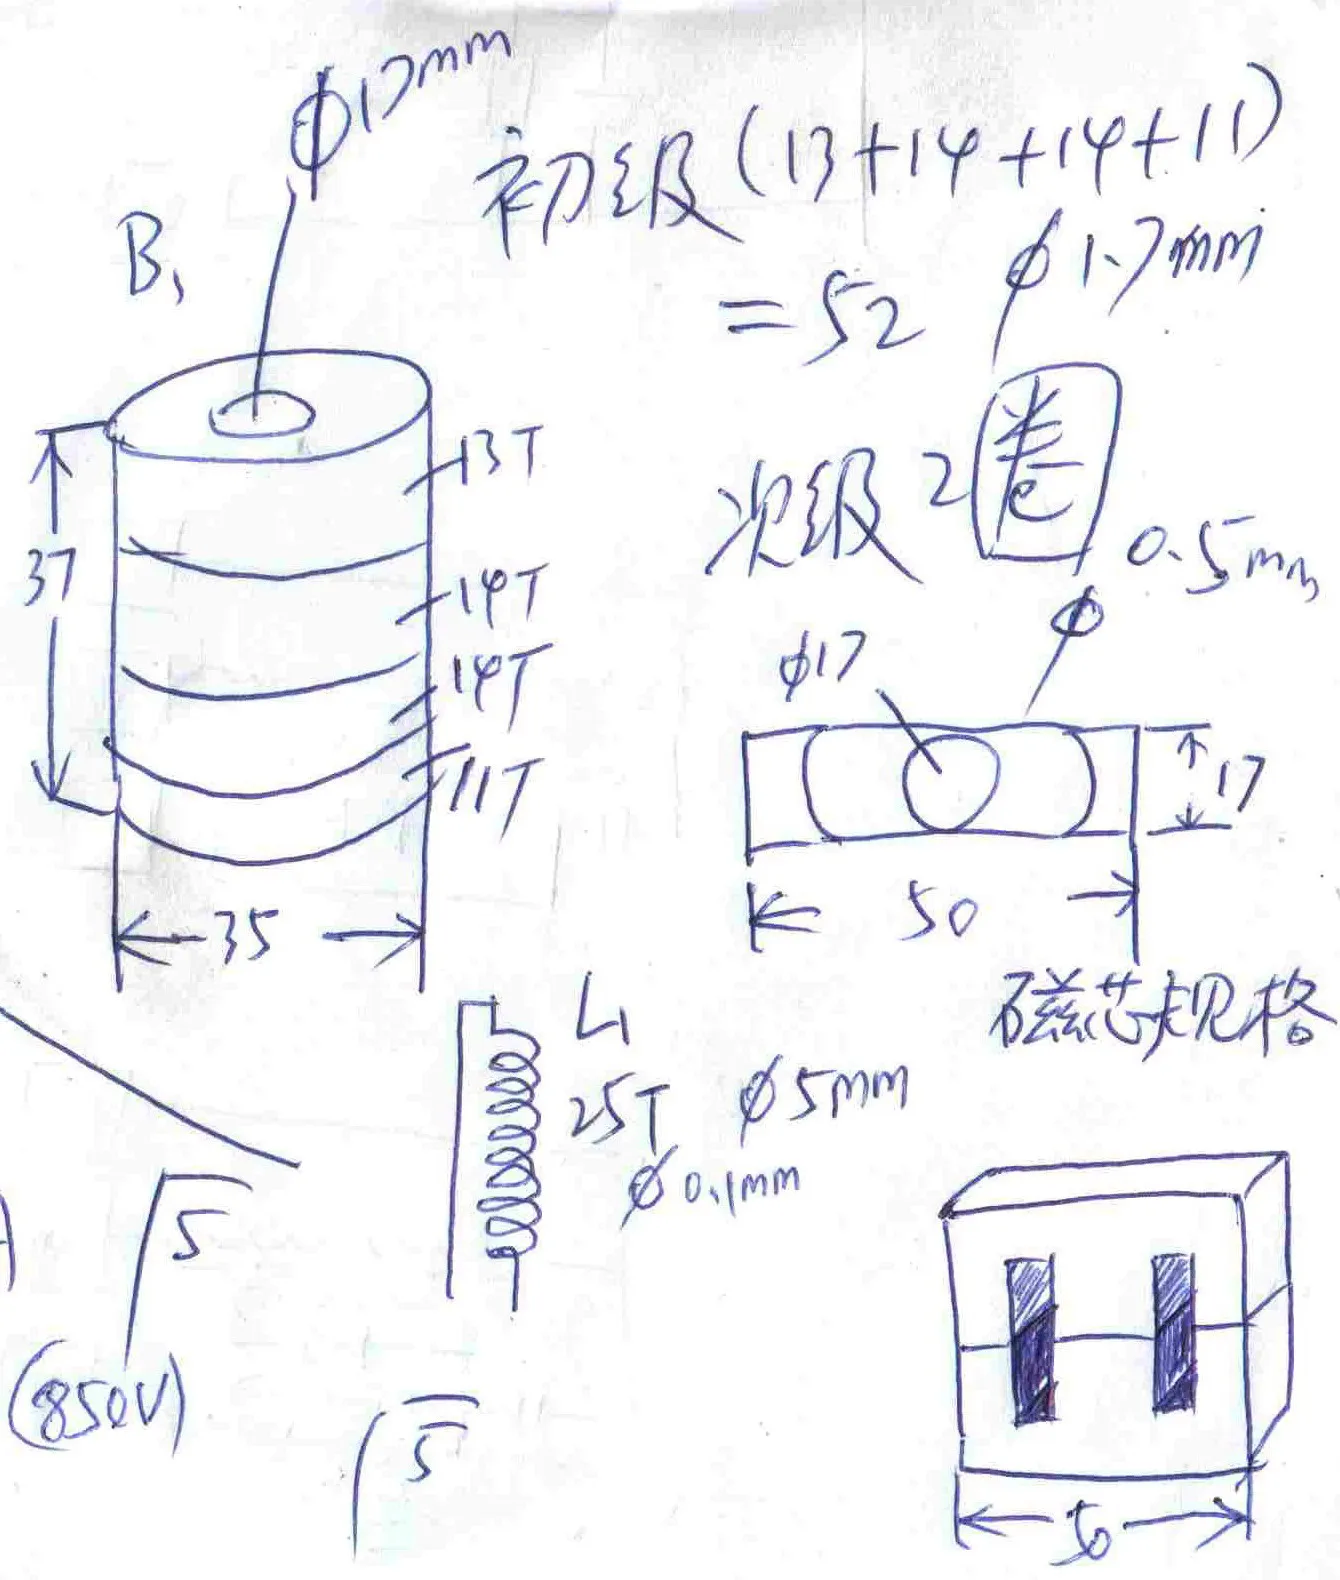 φ17mm
B1
初级(13+14+14+11)
=52
φ1.7mm
次级2圈
0.5mm
φ
13T
14T
14T
11T
37
35
φ17
17
50
磁芯规格
L1
25T φ5mm
φ0.1mm
5
(850V)
5
50